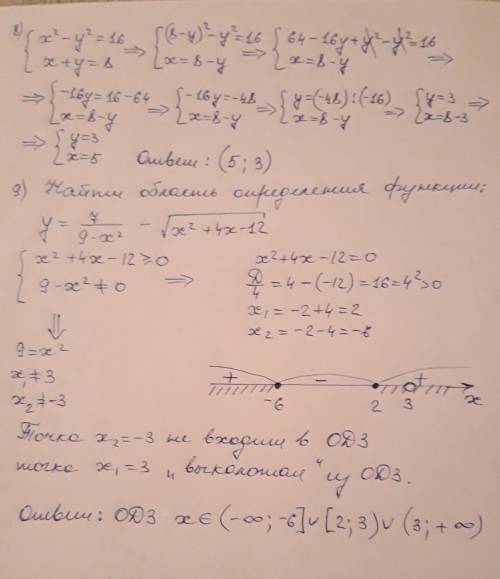 8) { x² - y² = 16 ; x + y = 8 ⇒ { (8-y)² - y² = 16 ; x = 8-y ⇒ { 64 - 16y + y² - y² = 16 ; x = 8-y ⇒
⇒ { -16y = 16-64 ; x = 8-y ⇒ { -16y = -48 ; x = 8-y ⇒ { y = (-48) : (-16) ; x = 8-y ⇒ { y = 3 ; x = 8-3 ⇒
⇒ { y = 3 ; x = 5 Ответ : (5 ; 3)
9) Найти область определения функции:
y = 7/(9-x²) - √(x² + 4x - 12)
{ x² + 4x - 12 ≥ 0 ; 9 - x² ≠ 0 ⇒
x² + 4x - 12 = 0
D/4 = 4 - (-12) = 16 = 4² > 0
x₁ = -2 + 4 = 2
x₂ = -2 - 4 = -6
⇓
9 = x²
x₁ ≠ 3
x₂ ≠ -3
+ - +
-6 2 3 x
Точка x₂ = -3 не входит в ОДЗ
точка x₁ = 3 "выколотая" из ОДЗ.
Ответ: ОДЗ x ∈ (-∞; -6] ∪ [2; 3) ∪ (3; +∞)